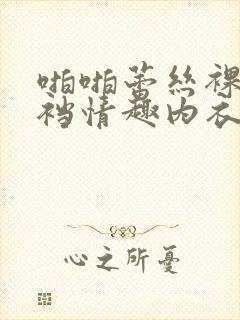 啪啪蕾丝裸
裆情趣内衣
心之所憂